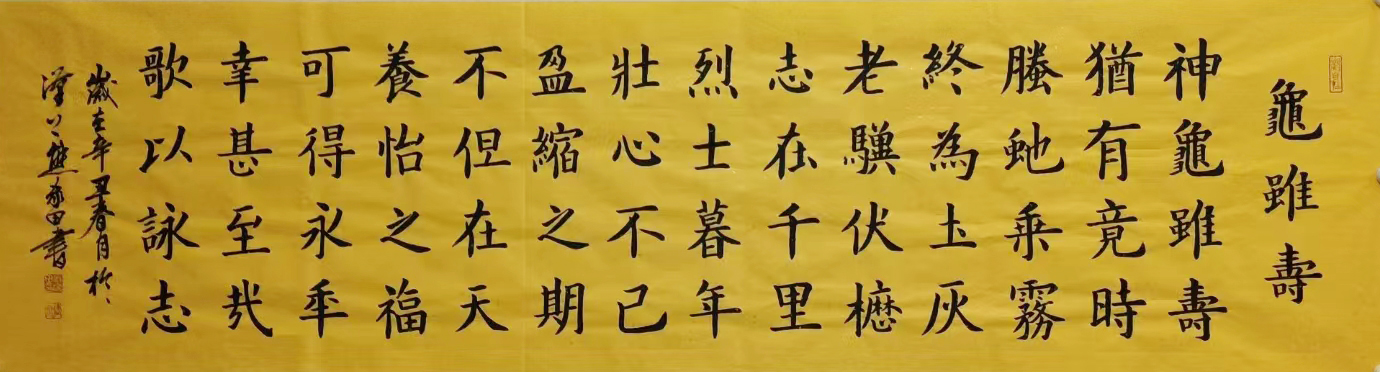 龜雖壽
神龜雖壽
猶有竟時
螣虵乗霧
終為圡灰
老驥伏櫪
志在千里
烈士暮年
壯心不已
盈縮之期
不但在天
養怡之福
可得永年
幸甚至哉
歌以詠志
歲在辛丑春月於
漢上熊田書